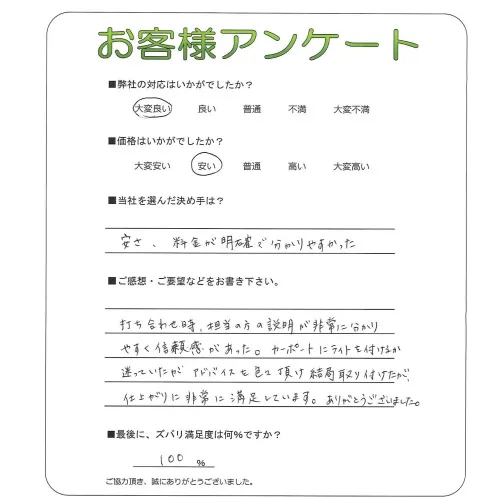 お客様アンケート
■弊社の対応はいかがでしたか？
大変良い 良い 普通 不満 大変不満
■価格はいかがでしたか？
大変安い 安い 普通 高い 大変高い
■当社を選んだ決め手は？
安さ、料金が明確で分かりやすかった
■ご感想・ご要望などをお書き下さい。
打ち合わせ時、担当の方の説明が非常に分かり
やすく信頼感があった。カーポートにライトを付けるか
迷っていたがアドバイスを色々頂け結局取り付けたが、
仕上がりに非常に満足しています。ありがとうございました。
■最後に、ズバリ満足度は何%ですか？
100 %
ご協力頂き、誠にありがとうございました。